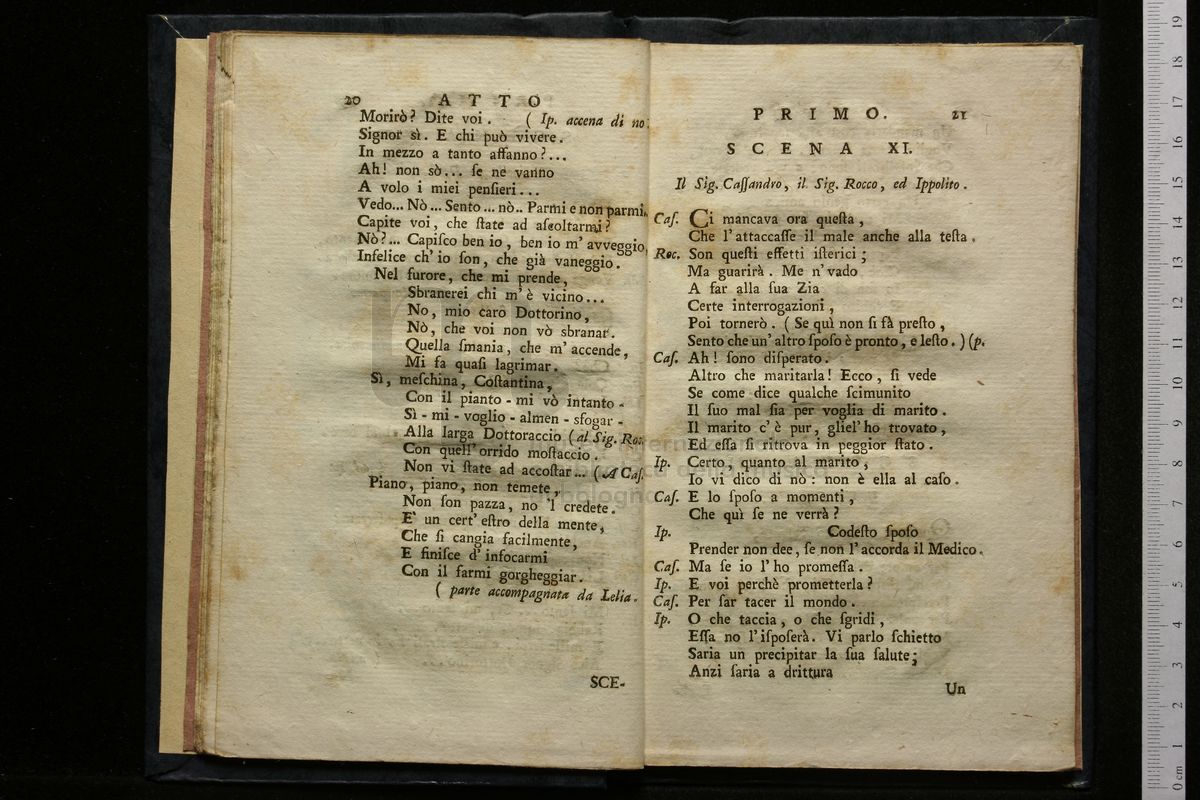 20 ATTO
Morirò? Dite voi. ( Ip. accena di no.
Signor sì. E chi può vivere.
In mezzo a tanto affanno?...
Ah! non sò... ſe ne vanno
A volo i miei penſieri...
Vedo... Nò... Sento... nò.. Parmi e non parmi.
Capite voi, che ſtate ad aſcoltarmi?
Nò?... Capiſco ben io, ben io m' avveggio,
Infelice ch' io ſon, che già vaneggio.
Nel furore, che mi prende,
Sbranerei chi m' è vicino...
No, mio caro Dottorino,
Nò, che voi non vò sbranar.
Quella ſmania, che m' accende,
Mi fa quaſi lagrimar.
Sì, meſchina, Coſtantina,
Con il pianto - mi vò intanto -
Sì - mi - voglio - almen - sfogar -
Alla larga Dottoraccio (al Sig. Roc.
Con quell' orrido moſtaccio.
Non vi ſtate ad accoſtar... (A Caſ.
Piano, piano, non temete,
Non ſon pazza, no 'l credete.
E' un cert' eſtro della mente,
Che ſi cangia facilmente,
E finiſce d' infocarmi
Con il farmi gorgheggiar.
( parte accompagnata da Lelia.
SCE-
PRIMO. 21
SCENA XI.
Il Sig. Caſſandro, il Sig. Rocco, ed Ippolito.
Caſ. Ci mancava ora queſta,
Che l' attaccaſſe il male anche alla teſta.
Roc. Son queſti effetti iſterici;
Ma guarirà. Me n' vado
A far alla ſua Zia
Certe interrogazioni,
Poi tornerò. ( Se quì non ſi fà preſto,
Sento che un' altro ſpoſo è pronto, e leſto. ) (p.
Caſ. Ah! ſono diſperato.
Altro che maritarla! Ecco, ſi vede
Se come dice qualche ſcimunito
Il ſuo mal ſia per voglia di marito.
Il marito c' è pur, gliel' ho trovato,
Ed eſſa ſi ritrova in peggior ſtato.
Ip. Certo, quanto al marito,
Io vi dico di nò: non è ella al caſo.
Caſ. E lo ſpoſo a momenti,
Che quì ſe ne verrà?
Ip. Codeſto ſpoſo
Prender non dee, ſe non l' accorda il Medico.
Caſ. Ma ſe io l' ho promeſſa.
Ip. E voi perchè prometterla?
Caſ. Per far tacer il mondo.
Ip. O che taccia, o che ſgridi,
Eſſa no l' iſpoſerà. Vi parlo ſchietto
Saria un precipitar la ſua ſalute;
Anzi ſaria a drittura
Un